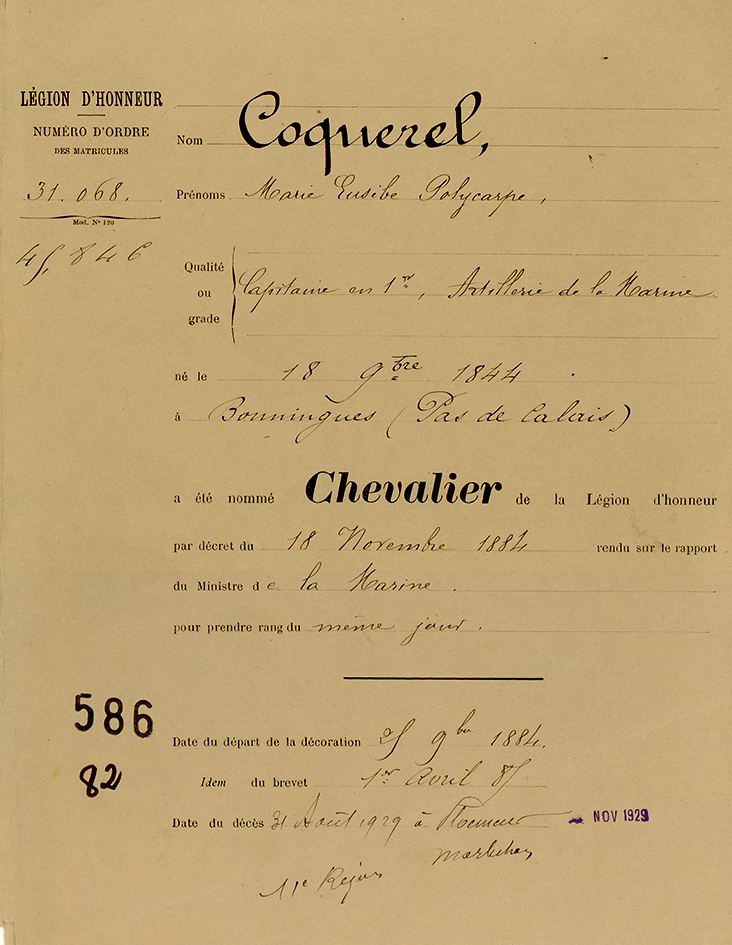 LÉGION D'HONNEUR
NUMÉRO D'ORDRE
DES MATRICULES
31.068.
Mod. N° 120
45,846
Nom Coquerel,
Prénoms Marie Eusèbe Polycarpe,
Qualité
ou
grade
Capitaine en 1er, Artillerie de la Marine
né le 18 9bre 1844
à Bonningues (Pas de Calais)
a été nommé Chevalier de la Légion d'honneur
par décret du 18 Novembre 1884 rendu sur le rapport
du Ministre de la Marine.
pour prendre rang du même jour.
586
82
Date du départ de la décoration 25 9bre 1884.
Idem du brevet 1er Avril 85
Date du décès 31 Août 1929 à Ploemeur NOV 1929
Morbihan